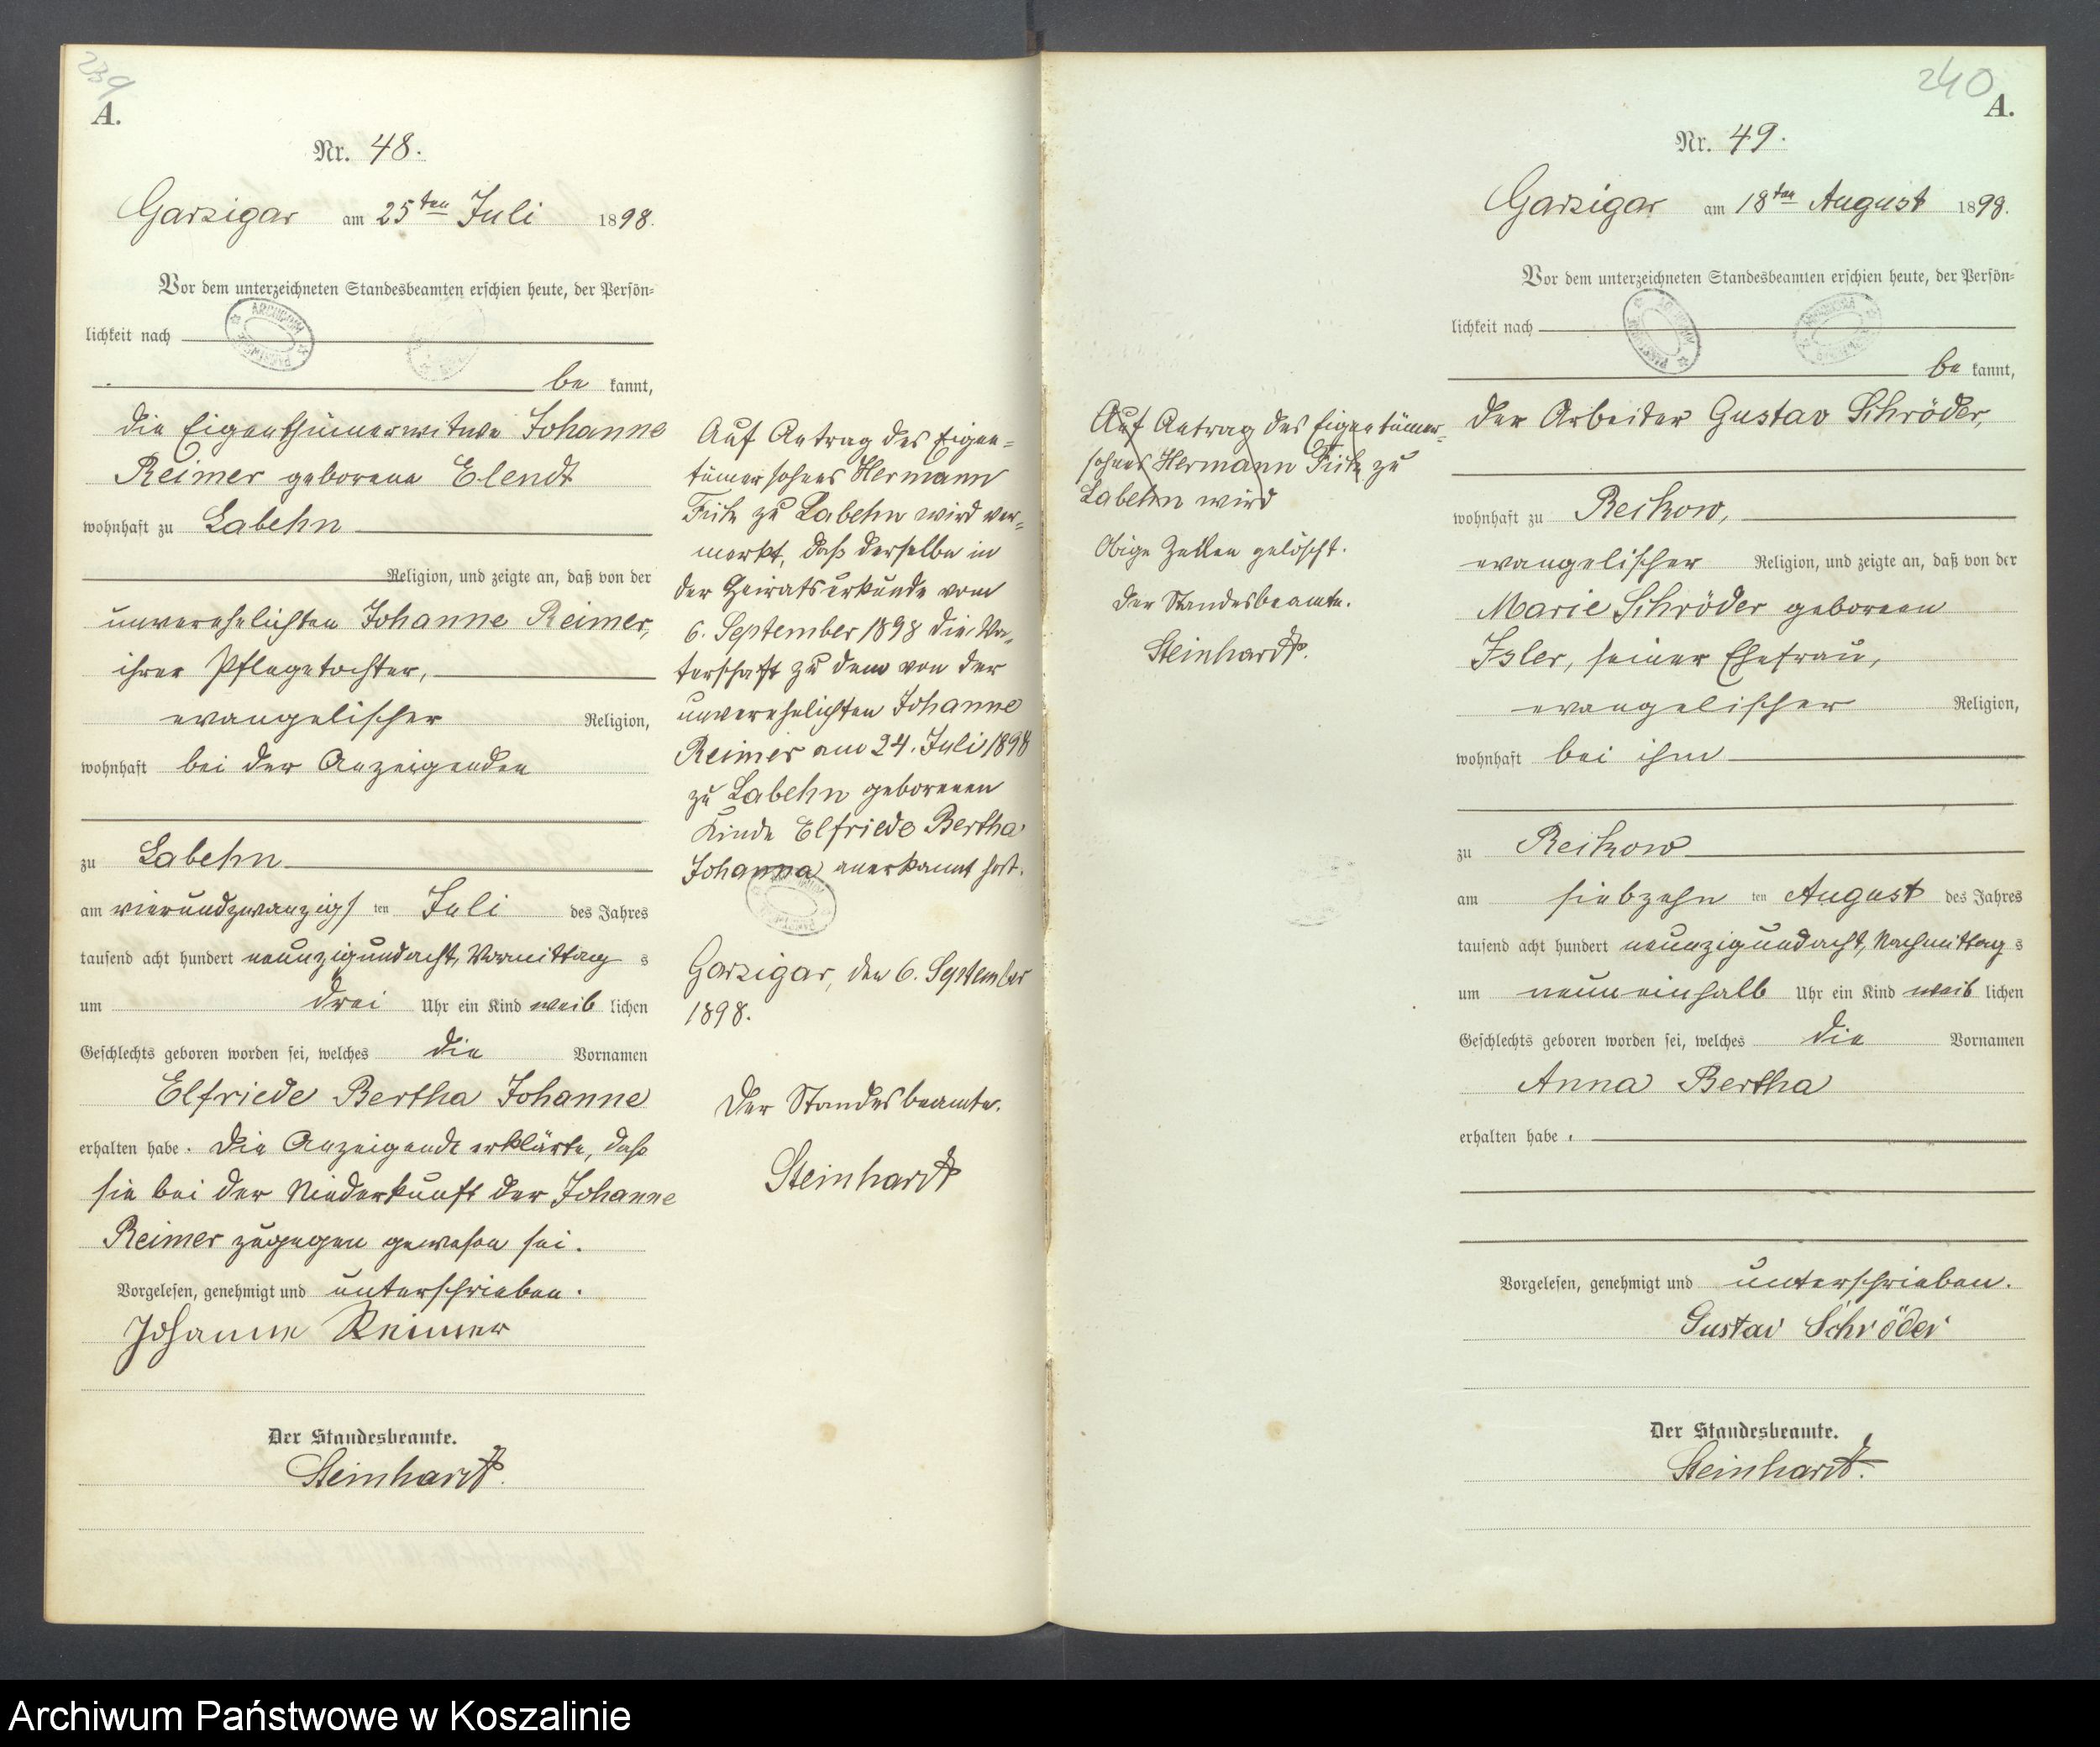 239
A.
Nr. 48.
Garzigar am 25ten Juli 1898.
Vor dem unterzeichneten Standesbeamten erschien heute, der Persön-
lichkeit nach
be kannt,
die Eigenthümerwitwe Johanne
Reimer geborene Elendt
wohnhaft zu Labehn
Religion, und zeigte an, daß von der
unverehelichten Johanne Reimer,
ihrer Pflegetochter,
evangelischer Religion,
wohnhaft bei der Anzeigenden
zu Labehn
am vierundzwanzigs ten Juli des Jahres
tausend acht hundert neunzigundacht, Vormittag s
um drei Uhr ein Kind weib lichen
Geschlechts geboren worden sei, welches die Vornamen
Elfriede Bertha Johanne
erhalten habe. Die Anzeigende erklärte, daß
sie bei der Niederkunft der Johanne
Reimer zugegen gewesen sei.
Vorgelesen, genehmigt und unterschrieben.
Johanne Reimer
Der Standesbeamte.
Steinhardt.
Auf Antrag des Eigen-
tümersohnes Hermann
Fritz zu Labehn wird ver-
merkt, daß derselbe in
der Heiratsurkunde vom
6. September 1898 die Va-
terschaft zu dem von der
unverehelichten Johanne
Reimer am 24. Juli 1898
zu Labehn geborenen
Kinde Elfriede Bertha
Johanna anerkannt hat.
Garzigar, den 6. September
1898.
Der Standesbeamte.
Steinhardt
Auf Antrag des Eigentümer-
sohnes Hermann Fritz zu
Labehn wird
Obige Zeilen gelöscht.
Der Standesbeamte.
Steinhardt.
240
A.
Nr. 49.
Garzigar am 18ten August 1898.
Vor dem unterzeichneten Standesbeamten erschien heute, der Persön-
lichkeit nach
be kannt,
der Arbeiter Gustav Schröder,
wohnhaft zu Reckow,
evangelischer Religion, und zeigte an, daß von der
Marie Schröder geborenen
Isler, seiner Ehefrau,
evangelischer Religion,
wohnhaft bei ihm
zu Reckow
am siebzehn ten August des Jahres
tausend acht hundert neunzigundacht, Nachmittag s
um neuneinhalb Uhr ein Kind weib lichen
Geschlechts geboren worden sei, welches die Vornamen
Anna Bertha
erhalten habe.
Vorgelesen, genehmigt und unterschrieben.
Gustav Schröder
Der Standesbeamte.
Steinhardt.
Archiwum Państwowe w Koszalinie